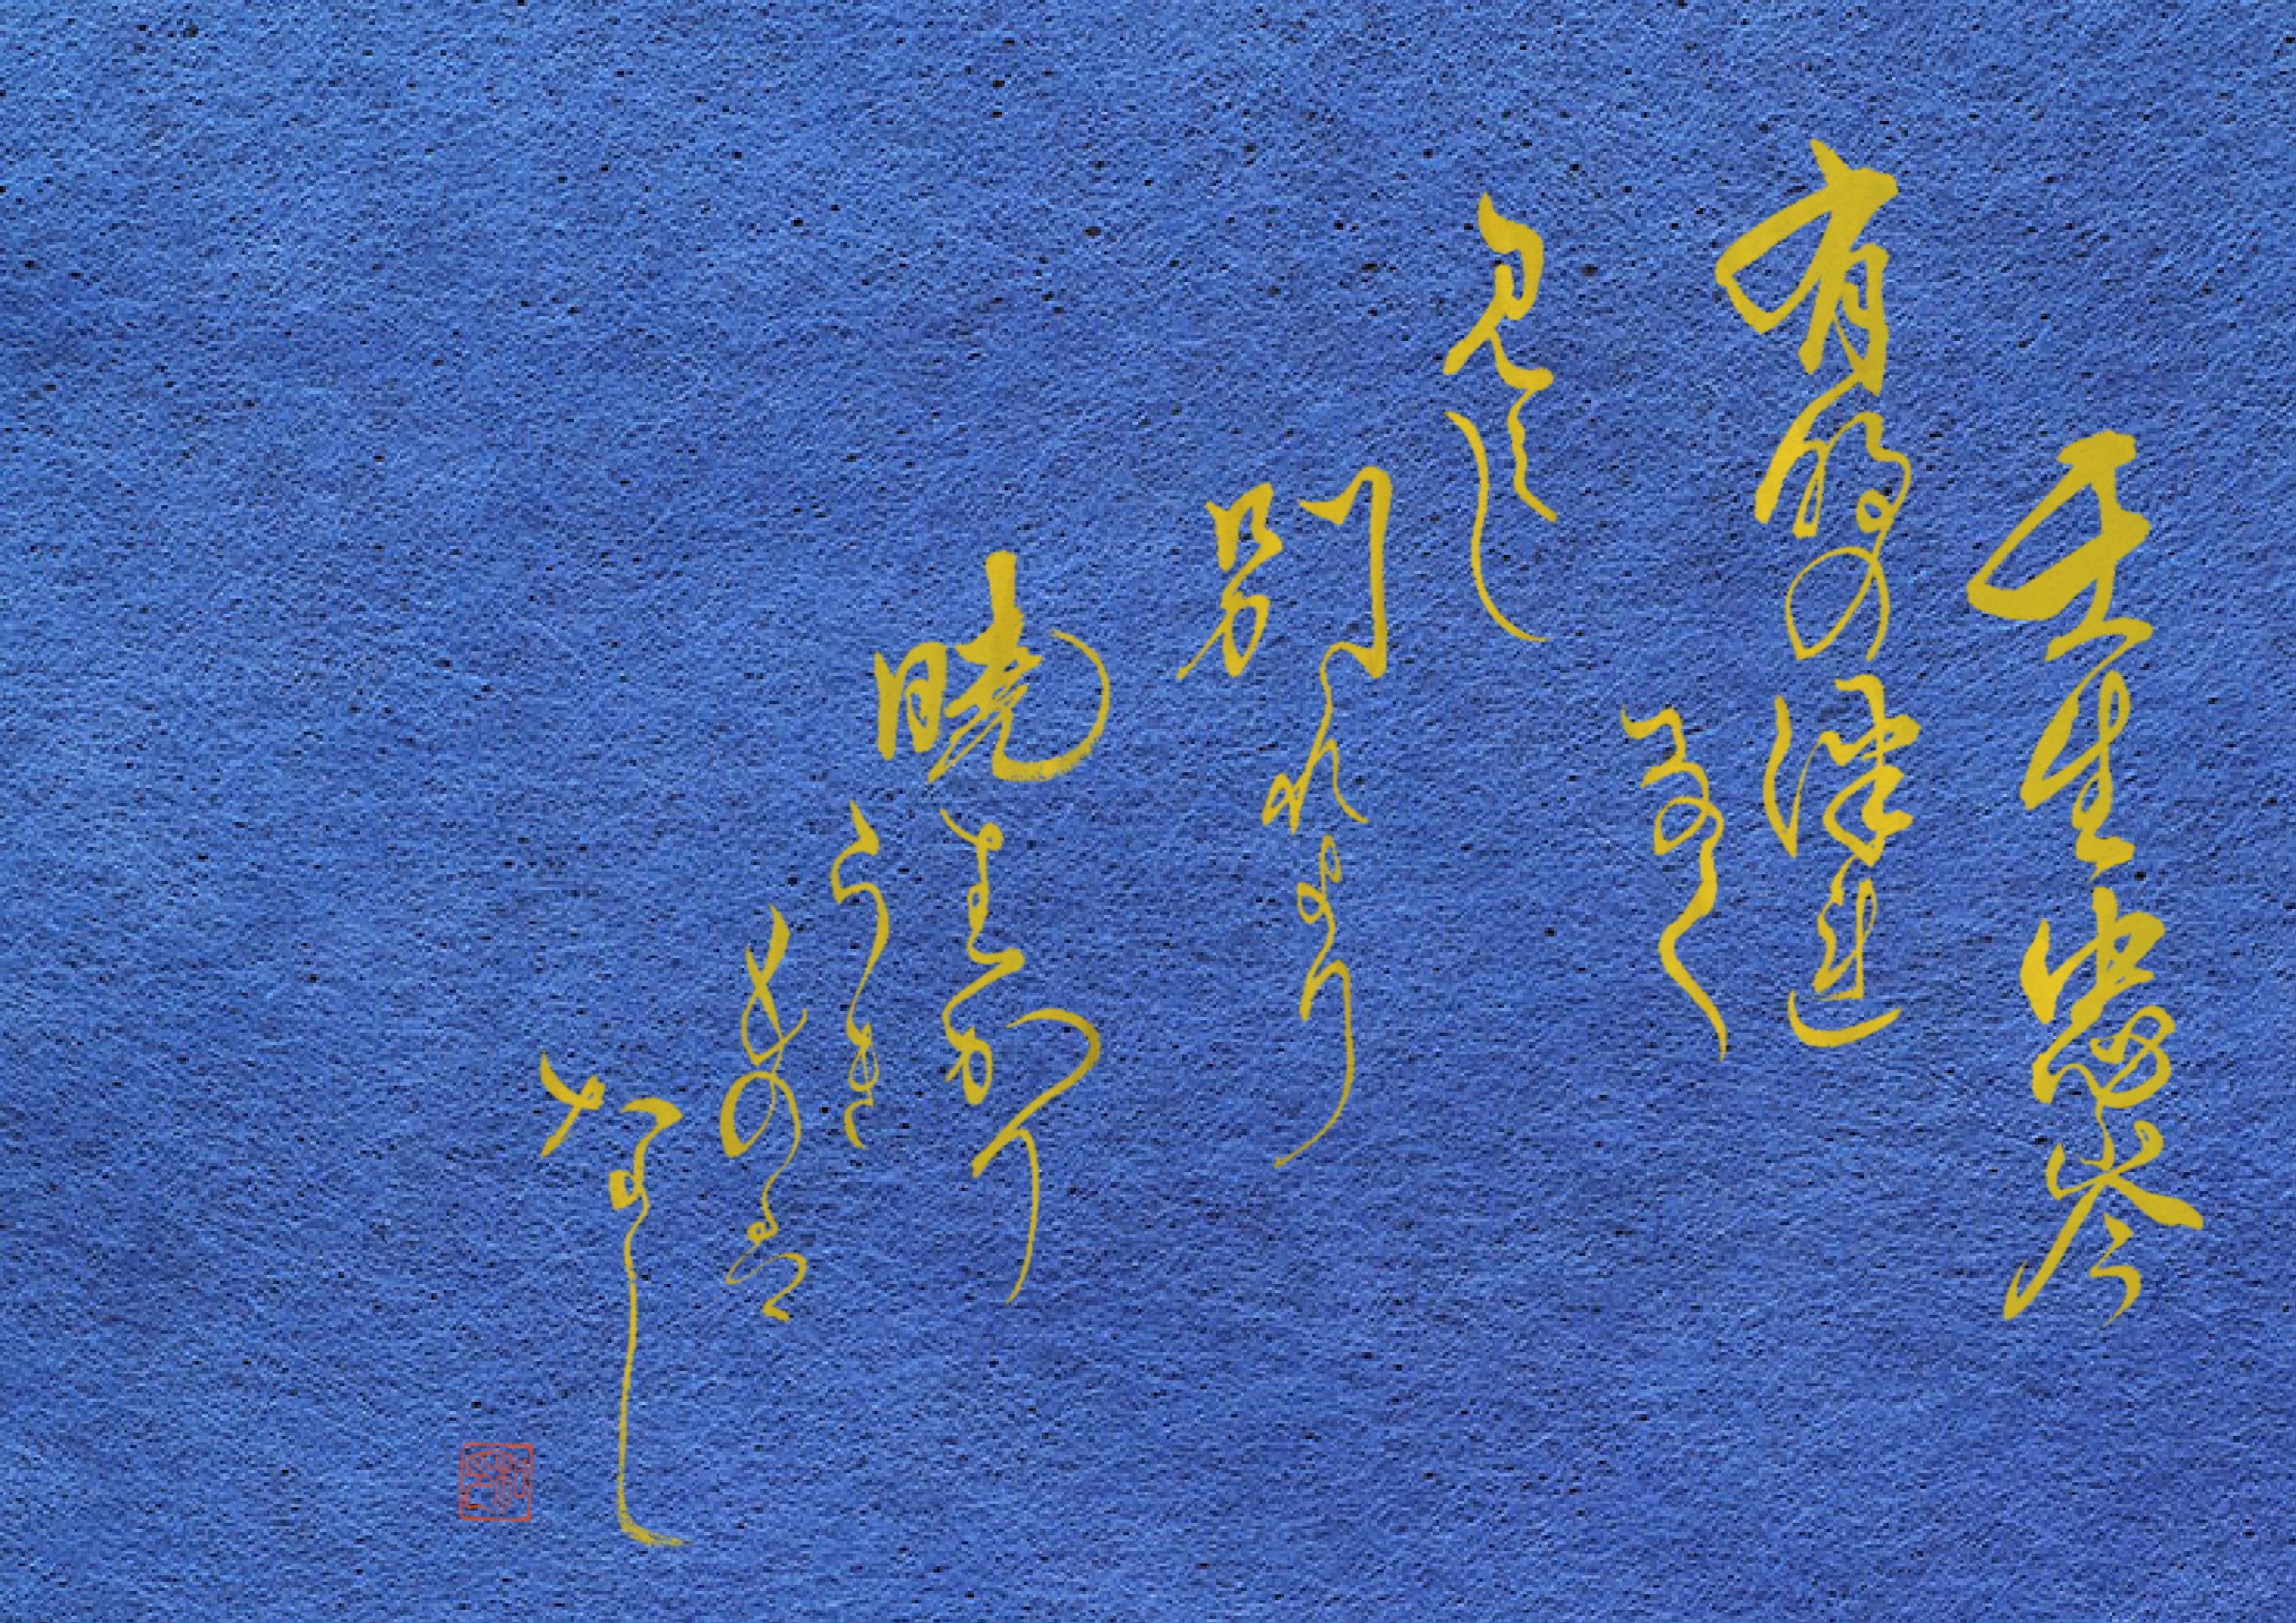 壬生忠岑
有明の津連
なく
見えし
別れより
暁はかり
うき
ものは
なし